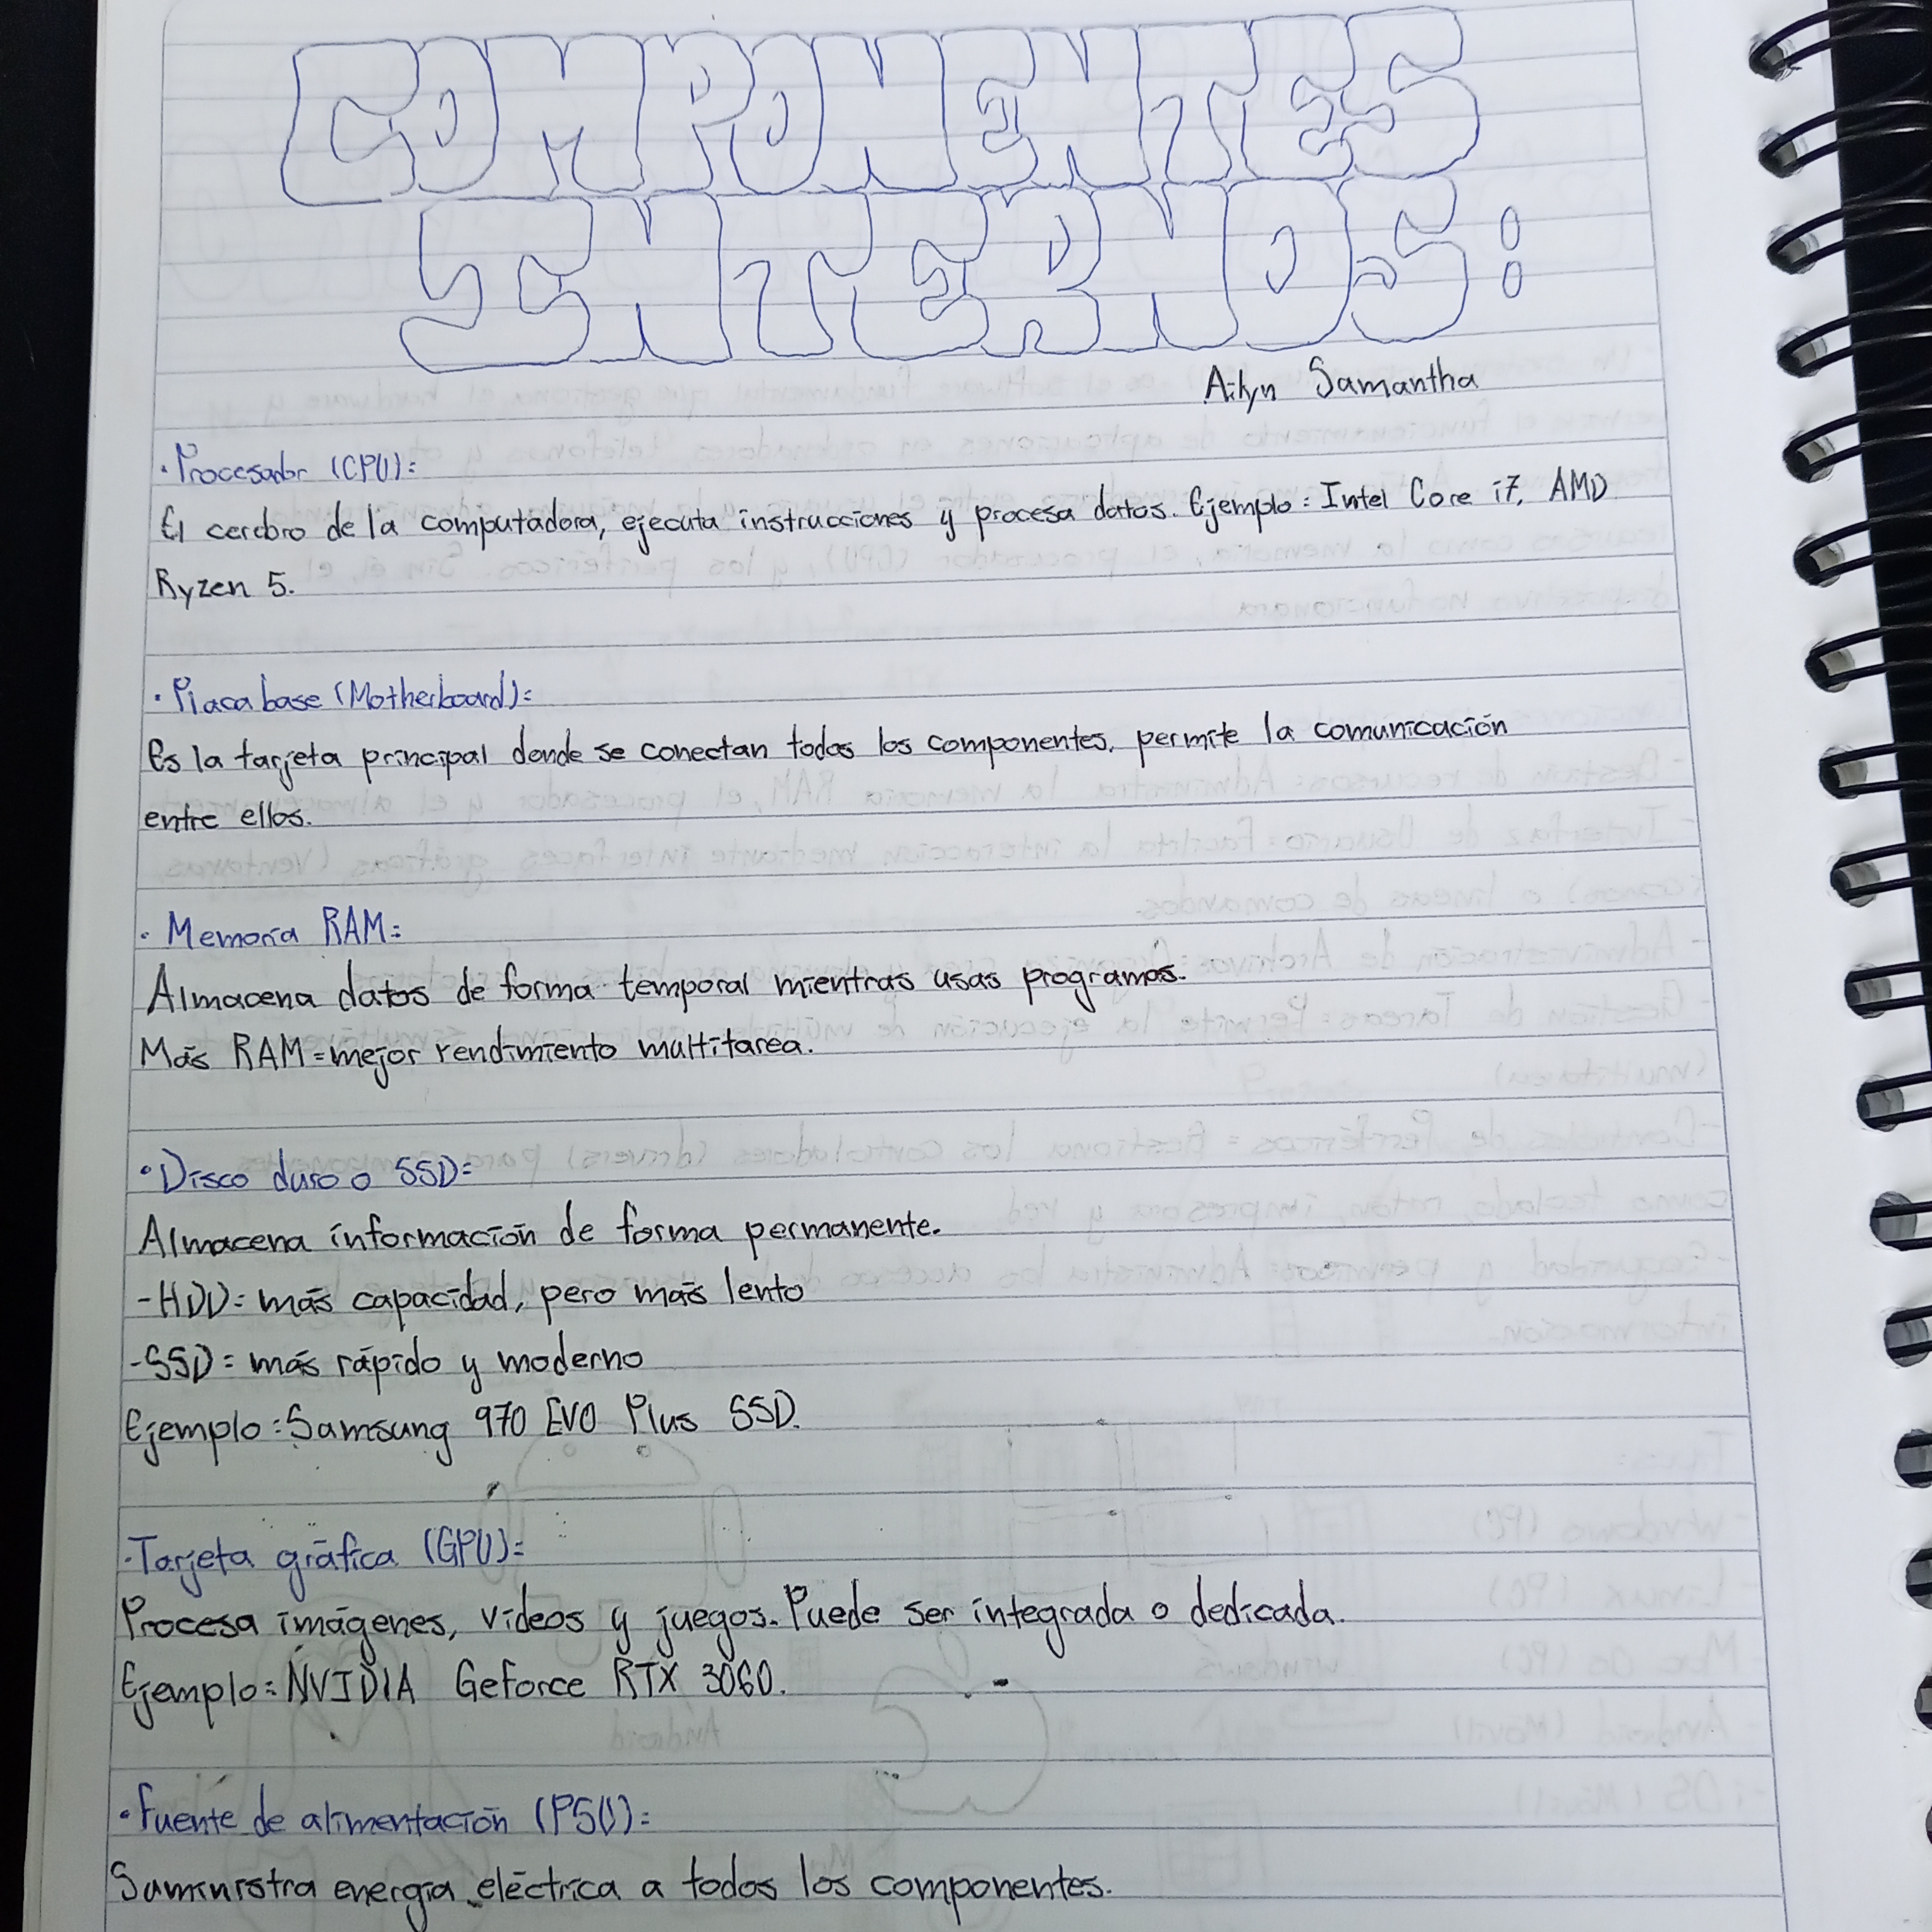 COMPONENTES
INTERNOS:
Ailyn Samantha
· Procesador (CPU):
El cerebro de la computadora, ejecuta instrucciones y procesa datos. Ejemplo: Intel Core i7, AMD
Ryzen 5.
· Placa base (Motherboard):
Es la tarjeta principal donde se conectan todos los componentes, permite la comunicación
entre ellos.
· Memoria RAM:
Almacena datos de forma temporal mientras usas programas.
Más RAM = mejor rendimiento multitarea.
· Disco duro o SSD:
Almacena información de forma permanente.
-HDD: más capacidad, pero más lento
-SSD: más rápido y moderno
Ejemplo: Samsung 970 EVO Plus SSD.
· Tarjeta gráfica (GPU):
Procesa imágenes, videos y juegos. Puede ser integrada o dedicada.
Ejemplo: NVIDIA Geforce RTX 3060.
· Fuente de alimentación (PSU):
Suministra energía eléctrica a todos los componentes.